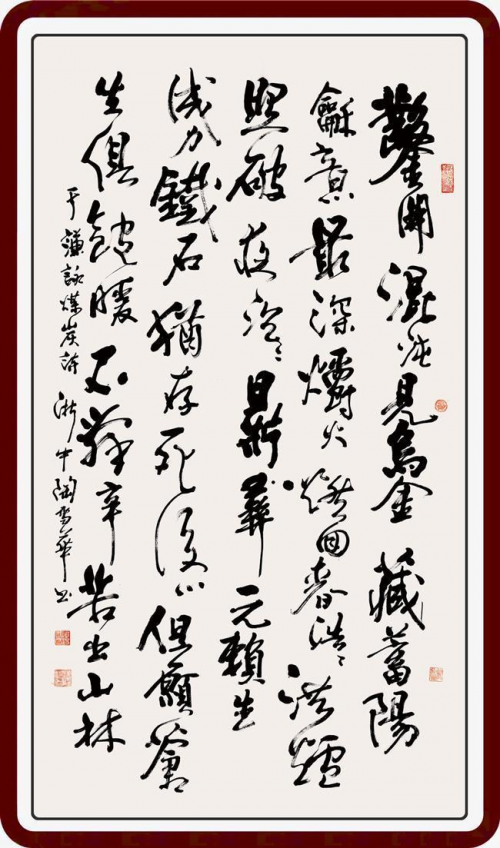 鑿開混沌見烏金藏蓄陽
龢意最深爝火燃回春浩〻洪爐
照破夜沉〻鼎彝元賴生
成力鐵石猶存死後心但願蒼
生俱飽暖不辭辛苦出山林
于謙詠煤炭詩 浙中陶雪華书